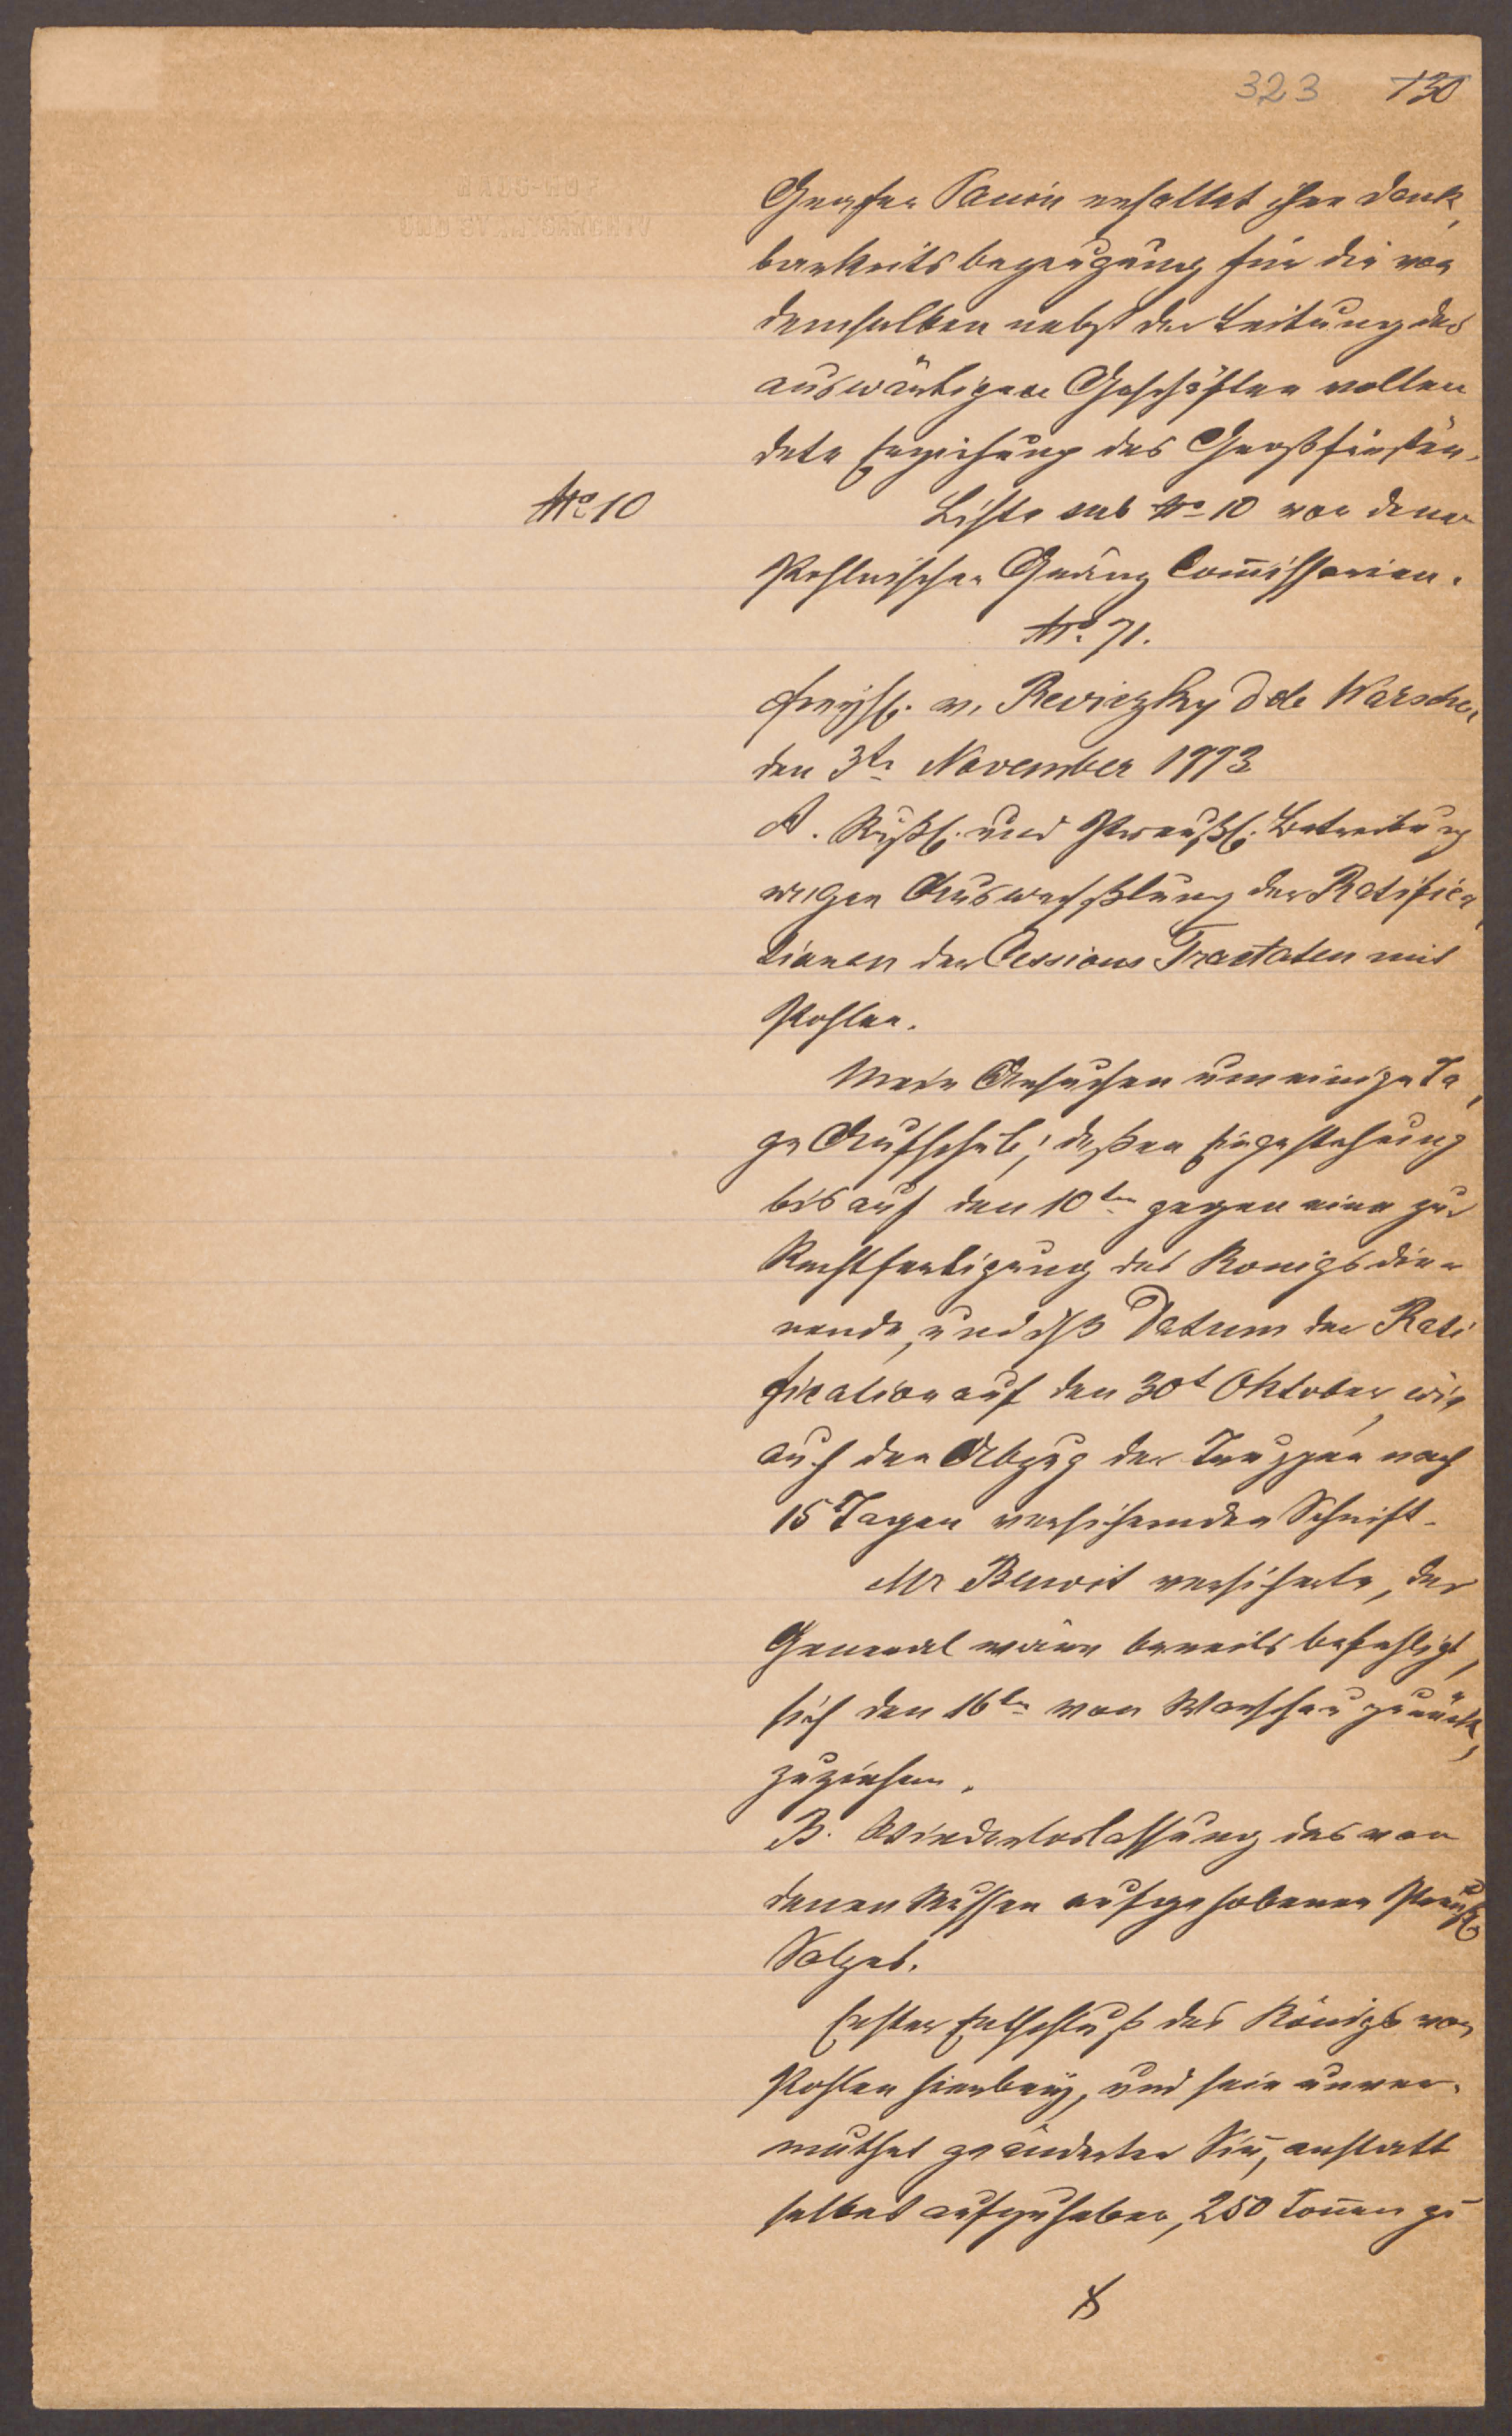 323 130
HAUS-HOF
UND STAATSARCHIV
Grafen Panin enthaltet ihre Dank,
barkeits bezeugung für die von
demselben nebst der Leitung des
auswärtigen Geschäften vollen
dete Erziehung des Großfürsten.
No 10
Liste sub No 10 von denen
Pohlnischen Gränz Com̄issarien.
No 71.
Freyh. v. Reviczky d de Warschau
den 3tn November 1773
A. Rußl. und Preußl. Betreibung
wegen Auswechslung der Ratifica,
tionen der Cessions Tractaten mit
Pohlen.
Mein Ansuchen um einige Ta,
ge Aufschub; deßen Eingestehung
bis auf den 10tn gegen eine zur
Rechtfertigung des Konigs die=
nende, und dß Datum der Rati
fication auf den 30t Oktober, wie
auch den Abzug der Truppen nach
15 Tagen versichernden Schrift.
Mr Benoit versicherte, der
General wäre bereits befehligt,
sich den 16tn von Warschau zurück,
zuziehen.
B. Wiederloslassung des von
denen Russen aufgehobenen Preuß.
Salzes.
Erster Entschluß des Königs von
Pohlen hierbey, und sein unver=
muthet geänderter Sin̄, anstatt
selbes aufzuheben, 250 Ton̄en zu